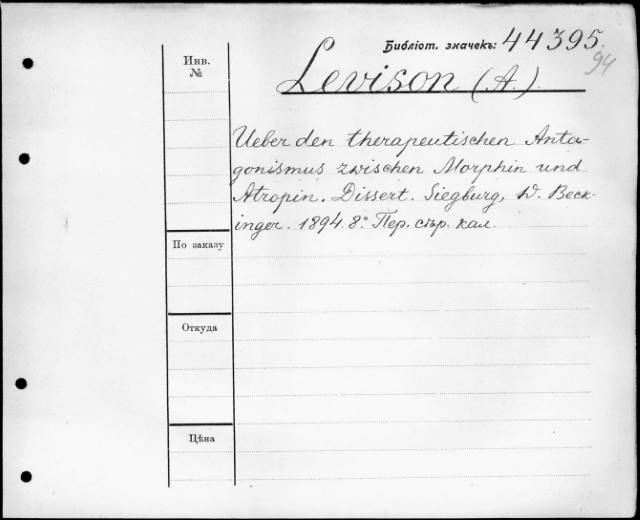 Библіот. значекъ: 44395.
94
Инв.
№
Levison (A.)
Ueber den therapeutischen Anta-
gonismus zwischen Morphin und
Atropin. Dissert. Siegburg, W. Beck-
inger. 1894. 8° Пер. стр. кал.
По заказу
Откуда
Цѣна